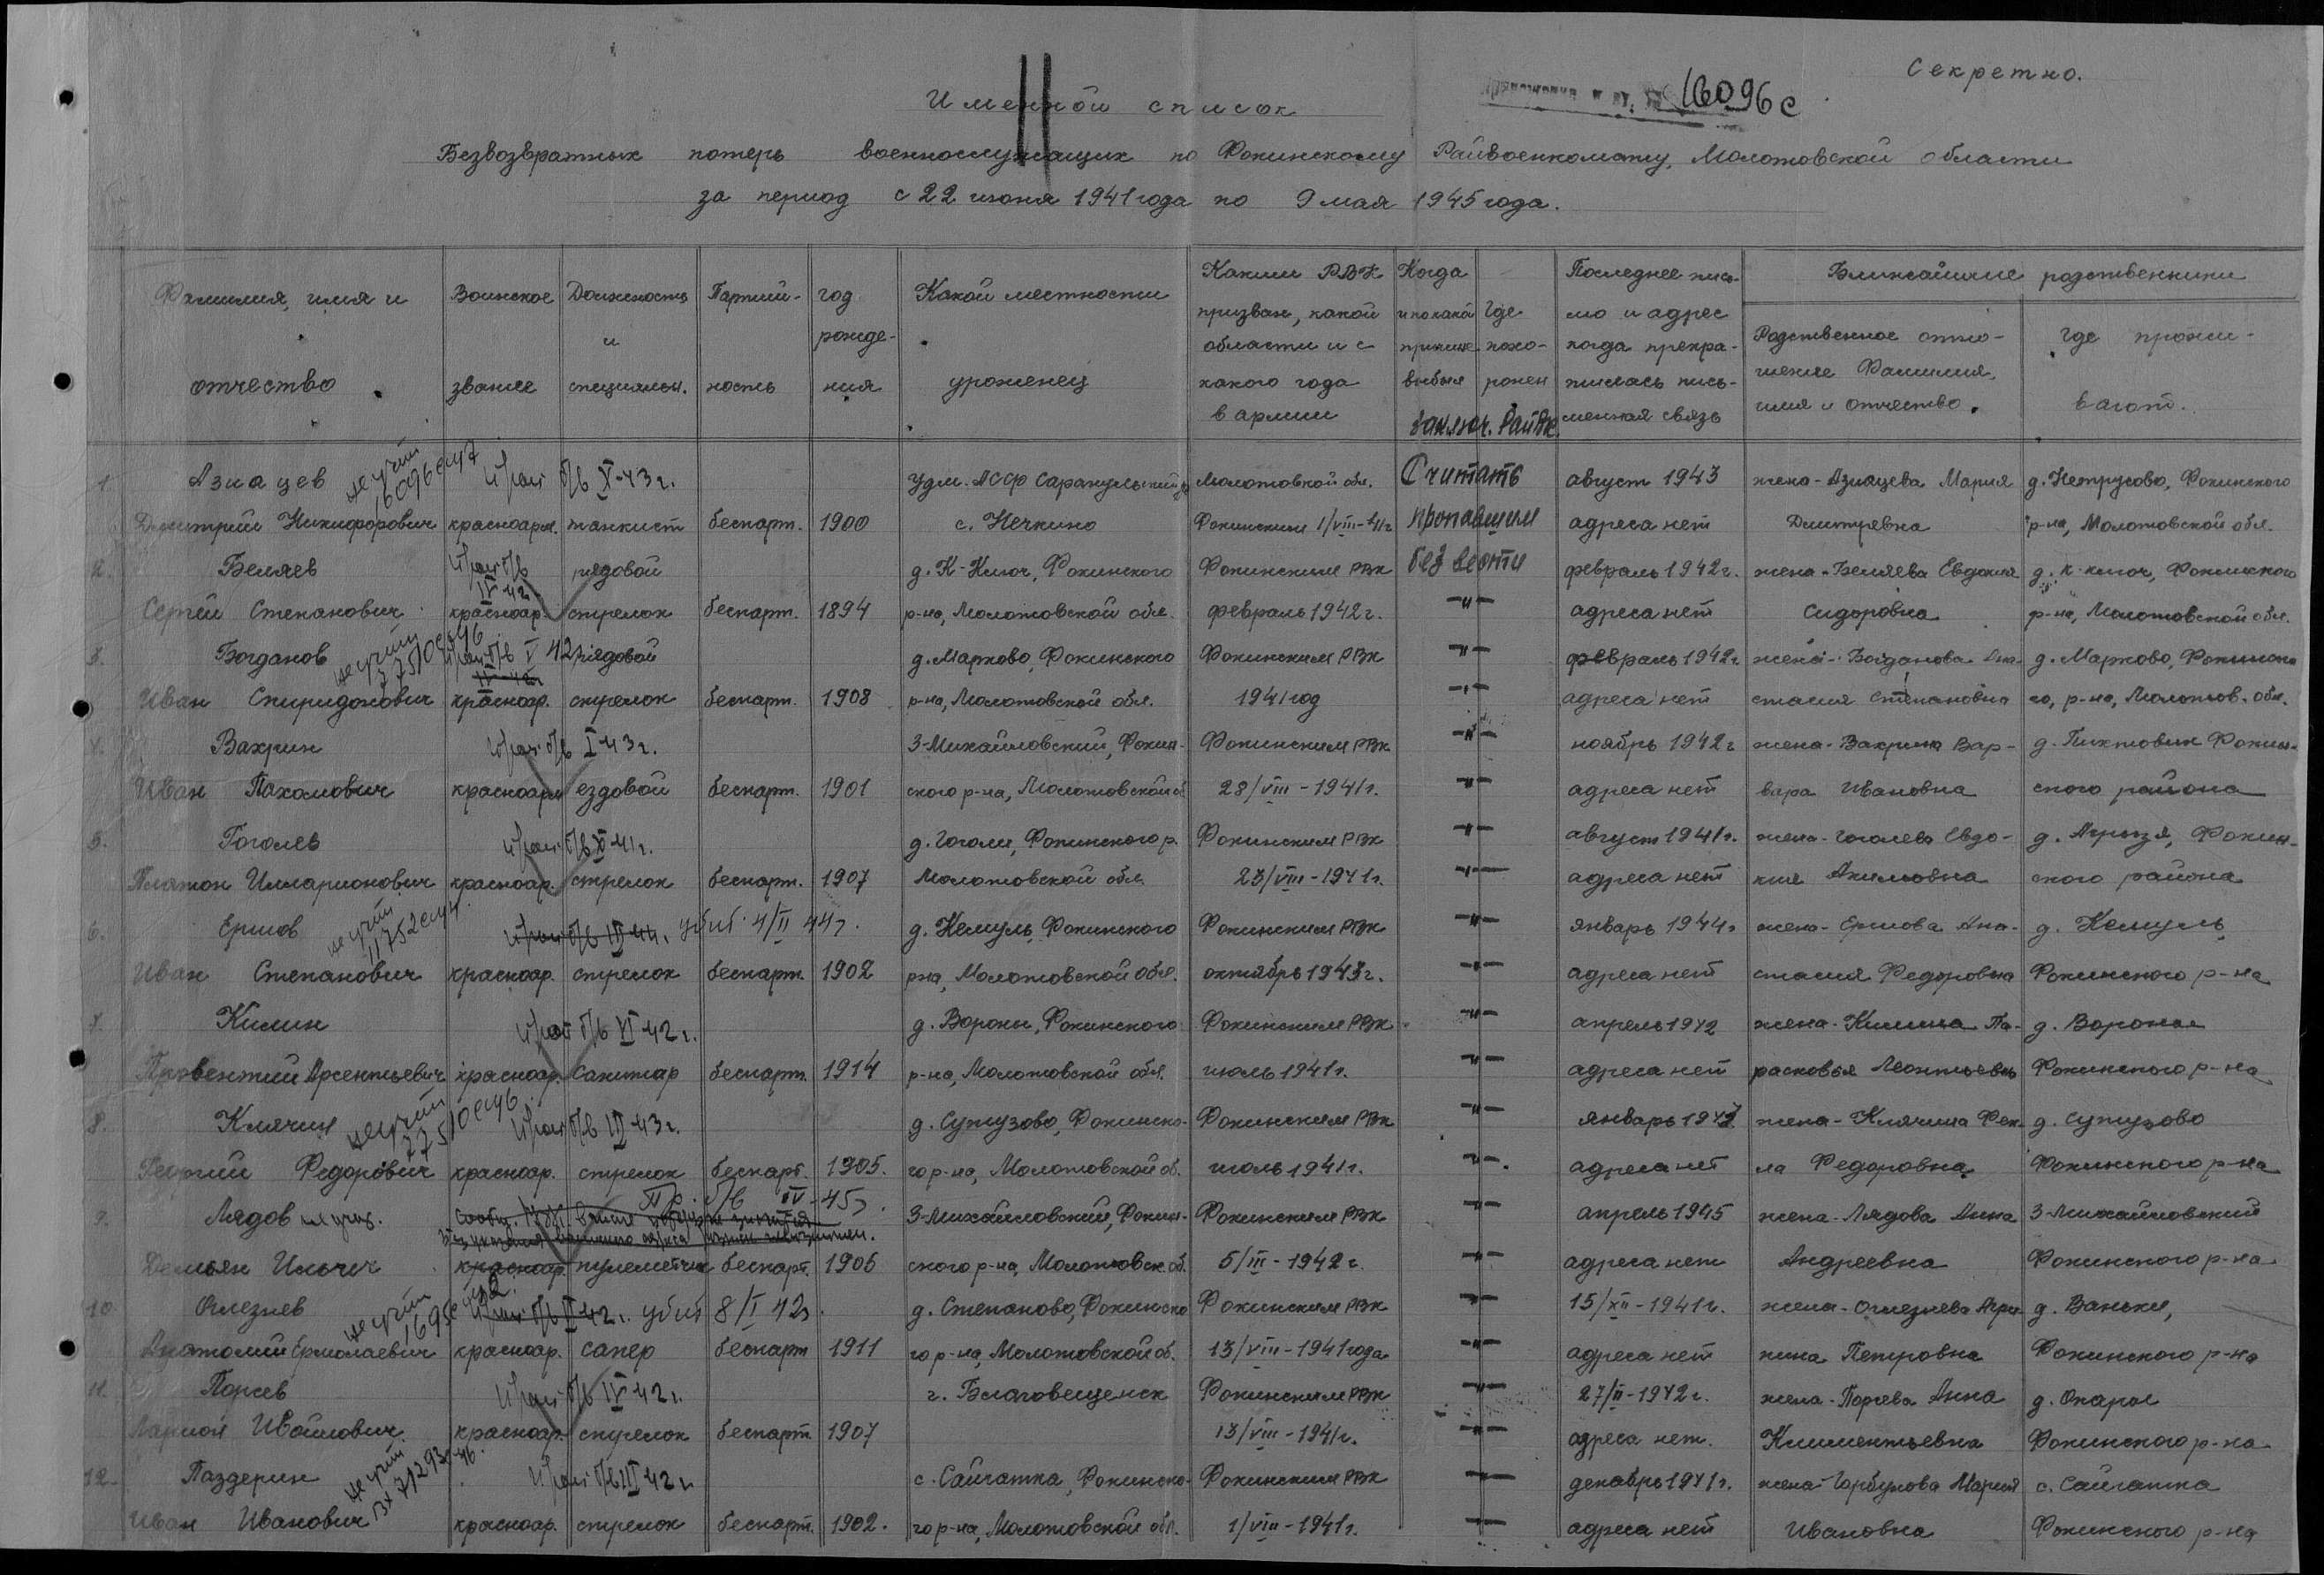 Секретно.
16096с
Именной список
Безвозвратных потерь военнослужащих по Фокинскому Райвоенкомату, Молотовской области
за период с 22 июня 1941 года по 9 мая 1945 года.
Фамилия, имя и отчество
Воинское звание
Должность и специальн.
Партийность
год рождения
Какой местности уроженец
Каким РВК призван, какой области и с какого года в армии
Когда и по какой причине выбыл
Где похоронен
Заключ. РайВК.
Последнее письмо и адрес когда прекратилась письменная связь
Ближайшие родственники
Родственное отношение Фамилия, имя и отчество.
Где прожи-
вают.
1. Азиацев не учтён 16096с п/б X-43г. Удм. АССР Сарапульский Молотовской обл. Считать август 1943 жена - Азиацева Мария д. Петрусово, Фокинского
Дмитрий Никифорович красноарм. танкист беспарт. 1900 с. Нечкино Фокинским 1/VIII-41г пропавшим адреса нет Дмитревна р-на, Молотовской обл.
2. Беляев п/б IV-42г рядовой д. К-Ключ, Фокинского Фокинским РВК без вести февраль 1942г. жена - Беляева Евдокия д. К-ключ, Фокинского
Сергей Степанович красноар. стрелок беспарт. 1894 р-на, Молотовской обл. февраль 1942г. -"- адреса нет Сидоровна р-на, Молотовской обл.
3. Богданов не учтён п/б V 42 рядовой д. Марково, Фокинского Фокинским РВК -"- февраль 1942г жена - Богданова Ана- д. Марково, Фокинско
Иван Спиридонович красноар. стрелок беспарт. 1908 р-на, Молотовской обл. 1941 год -"- адреса нет стасия Степановна го, р-на, Молотов. обл.
4. Вахрин п/б I-43г. З-Михайловский, Фокин- Фокинским РВК -"- ноябрь 1942г жена - Вахрина Вар- д. Пихтовик Фокин-
Иван Пахомович красноарм ездовой беспарт. 1901 ского р-на, Молотовской об 28/VIII-1941г. -"- адреса нет вара Ивановна ского района
5. Гоголев п/б XI-41г. д. Гоголи, Фокинского р. Фокинским РВК -"- август 1941г. жена - Гоголева Евдо- д. Агрызя, Фокин-
Платон Илларионович красноар. стрелок беспарт. 1907 Молотовской обл. 23/VIII-1941г. -"- адреса нет кия Акимовна ского района
6. Ершов не учтён 11752с п/б IV-44. убит 4/II 44г. д. Кемуль, Фокинского Фокинским РВК -"- январь 1944г жена - Ершова Ана- д. Кемуль
Иван Степанович красноар. стрелок беспарт. 1902 р-на, Молотовской обл. октябрь 1943г. -"- адреса нет стасия Федоровна Фокинского р-на
7. Килин п/б VI-42г. д. Вороны, Фокинского Фокинским РВК -"- апрель 1942 жена - Килина Па- д. Вороны
Павентий Арсентьевич красноар. санитар беспарт. 1914 р-на, Молотовской обл. июль 1941г. -"- адреса нет расковья Леонтьевна Фокинского р-на
8. Клячин не учтён п/б III-43г. д. Сутузово, Фокинско- Фокинским РВК -"- январь 1943 жена - Клячина Фек- д. Сутузово
Георгий Федорович красноар. стрелок беспарт. 1905. го р-на, Молотовской об. июль 1941г. -"-. адреса нет ла Федоровна Фокинского р-на
9. Лядов не учт. п/б IV-45г. З-Михайловский, Фокин- Фокинским РВК -"- апрель 1945 жена - Лядова Анна З-Михайловский
Демьян Ильич красноар. пулеметчик беспарт. 1906 ского р-на, Молотовск. об. 5/III-1942г. -"- адреса нет Андреевна Фокинского р-на
10. Оглезнев не учтён п/б II-42г. убит 8/I 42г. д. Степаново, Фокинско Фокинским РВК -"- 15/XII-1941г. жена - Оглезнева Агри- д. Ваньки,
Анатолий Ермолаевич красноар. сапер беспарт 1911 го р-на, Молотовской об. 13/VIII-1941 года -"- адреса нет пина Петровна Фокинского р-на
11. Порсев п/б IV-42г. г. Благовещенск Фокинским РВК -"- 27/II-1942г. жена - Порсева Анна д. Опары
Ларион Иванович красноар. стрелок беспарт. 1907 13/VIII-1941г. -"- адреса нет. Климентьевна Фокинского р-на
12. Паздерин не учтён п/б III 42г с. Сайгатка, Фокинско- Фокинским РВК -"- декабрь 1941г. жена Горбунова Мария с. Сайгатка
Иван Иванович красноар. стрелок беспарт. 1902. го р-на, Молотовской обл. 1/VIII-1941г. -"- адреса нет Ивановна Фокинского р-на